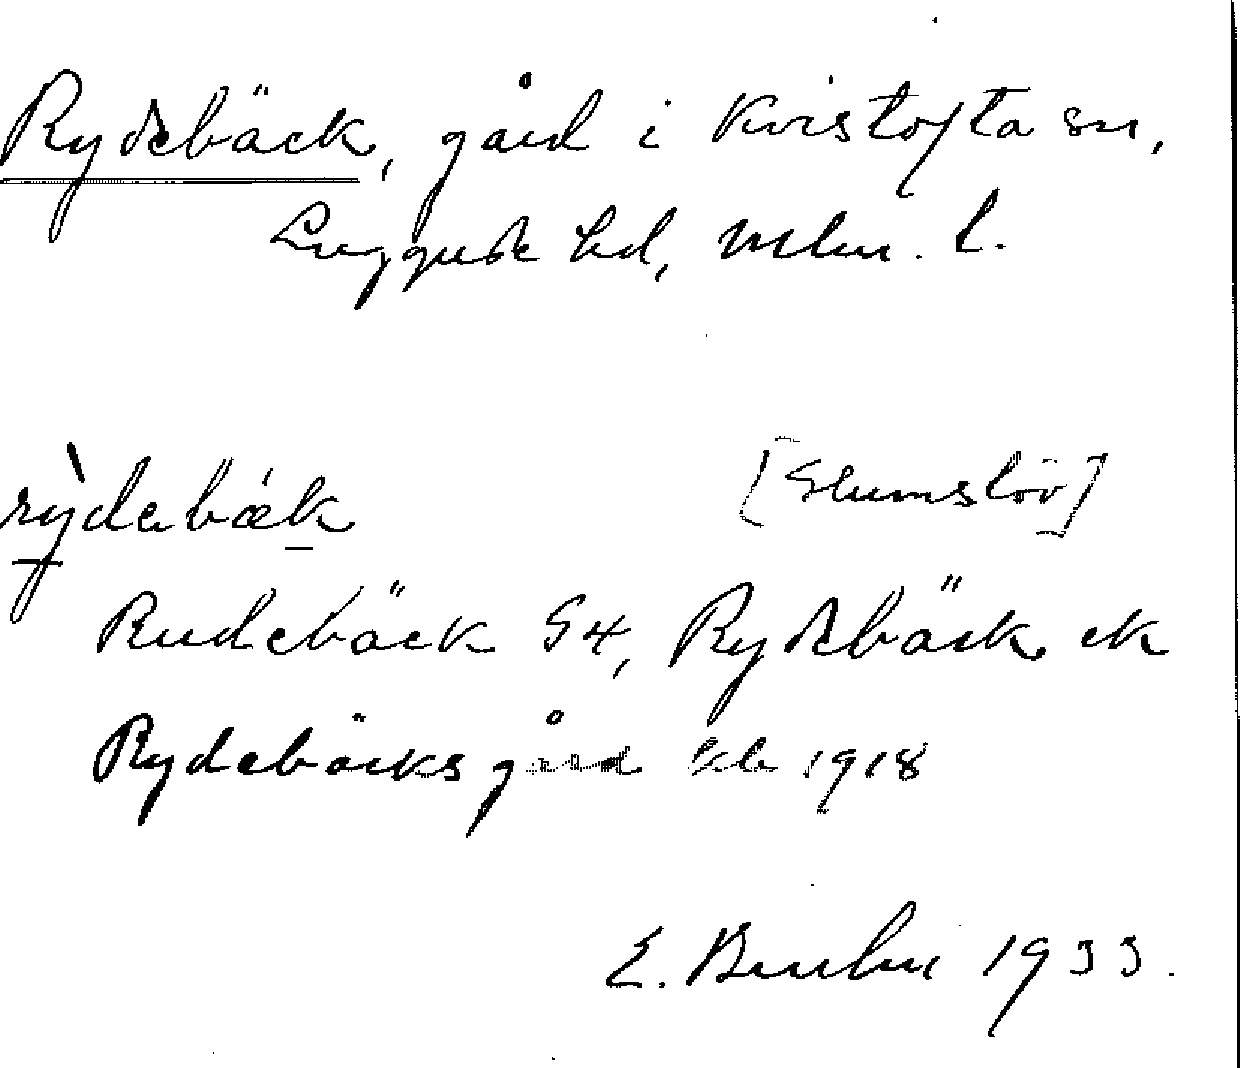 Rydebäck, gård i Kvistofta sn,
Luggude hd, Mlm. l.
rỳdabák [Glumslöv]
Rudebäck G4, Rydebäck ek
Rydebäcks gård kb 1918
E. 1933.